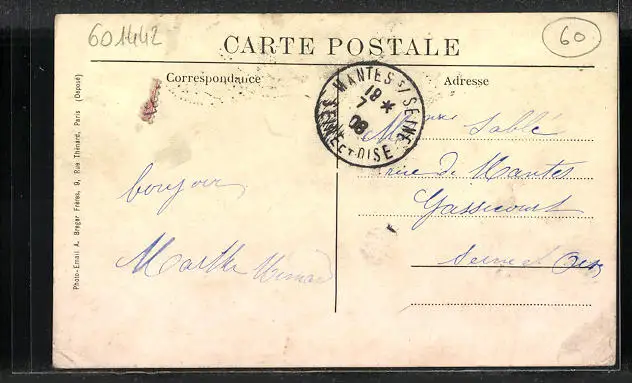 601442
60
CARTE POSTALE
Correspondance
Adresse
MANTES S/ SEINE
18 *
7
08
SEINE ET OISE
Sablé
rue de Mantes
Gassicourt
Seine et Oise
bonjour
Marthe
Photo-Email A. Breger Frères, 9, Rue Thénard, Paris (Déposé)